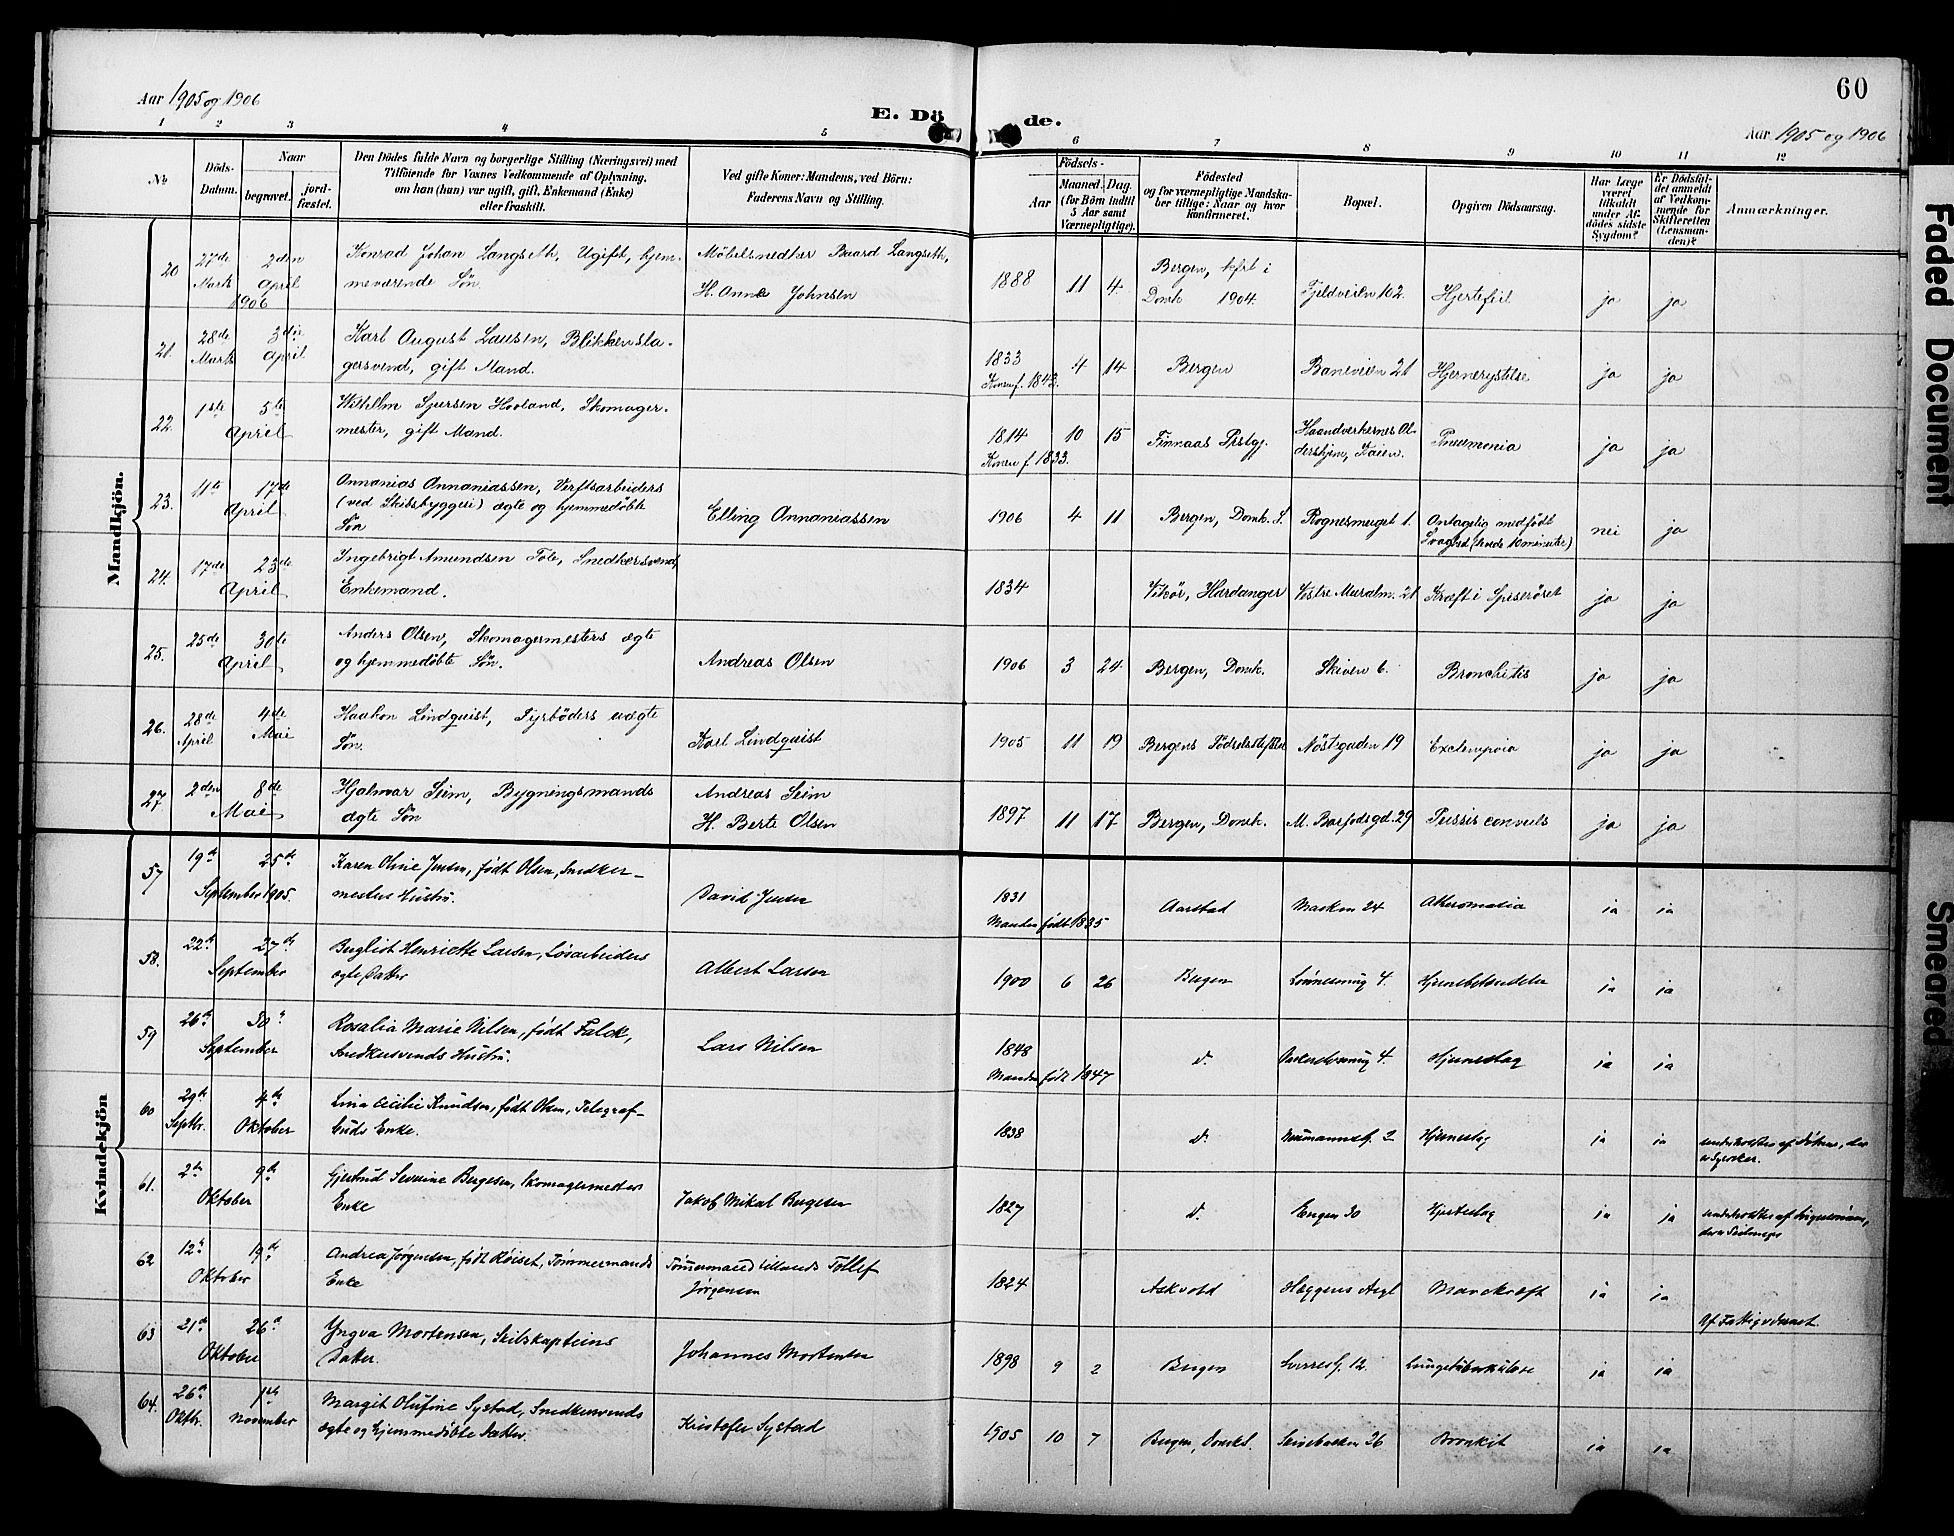 Aar 1905 og 1906
E. Dö de.
60
Aar 1905 og 1906
1 2 3 4 5 6 7 8 9 10 11 12
No
Döds-Datum.
Naar
begravet.
jord-fæstet.
Den Dödes fulde Navn og borgerlige Stilling (Næringsvei) med
Tilföiende for Voxnes Vedkommende af Oplysning,
om han (hun) var ugift, gift, Enkemand (Enke)
eller fraskilt.
Ved gifte Koner: Mandens, ved Börn:
Faderens Navn og Stilling.
Födsels-
Aar
Maaned.
Dag.
(for Börn indtil
5 Aar samt
Værnepligtige).
Födested
og for værnepligtige Mandska-
ber tillige: Naar og hvor
konfirmeret.
Bopæl.
Opgiven Dödsaarsag.
Har Læge
været
tilkaldt
under Af-
dödes sidste
Sygdom?
Er Dödsfal-
det anmeldt
af Vedkom-
mende for
Skifteretten
(Lensman-
den)?
Anmærkninger.
Mandkjön.
20 27de Marts 2den April 1906 Konrad Johan Langseth, Ugift, hjem-
meværende Søn. Møbelsnedker Baard Langseth,
H. Anna Johnsen 1888 11 4. Bergen, kfrt i
Domk 1904. Fjeldveien 102. Hjertefeil ja ja
21. 28de Marts 3die April. Karl August Lausen, Blikkensla-
gersvend, gift Mand. 1833 Konen f. 1843. 4 14 Bergen Baneveien 21 Hjernerystelse ja ja
22. 1ste 5te April Wilhelm Sjursen Hovland, Skomager-
mester, gift Mand. 1814 Konen f 1833. 10 15 Finnaas Prstgj. Haandverkernes Al-
dershjem, Kaien. Pneumonia ja ja
23. 11te 17de April Annanias Annaniassen, Verftsarbeiders
(ved Skibsbyggeri) ægte og hjemmedøbte
Søn Elling Annaniassen 1906 4 11 Bergen, Domk. S. Rognesmuget 1. Antagelig medfødt
Svaghed (levede 10 minuter) nei ja
24. 17de 23de April Ingebrigt Amundsen Tolo, Snedkersvend,
Enkemand. 1834 Vikør, Hardanger Vestre Muralm. 21 Kræft i Spiserøret ja ja
25. 25de 30te April Anders Olsen, Skomagermesters ægte
og hjemmedøbte Søn. Andreas Olsen 1906 3 24 Bergen, Domk. Skiven 6. Bronchitis ja ja
26. 28de April 4de Mai Haakon Lindquist, Fyrbøders uægte
Søn. Karl Lindquist 1905 11 19 Bergens Fødselsstiftelse Nøstegaden 19 Eclampsia ja ja
27. 2den 8de Mai Hjalmar Seim, Bygningsmands
ægte Søn Andreas Seim
H. Berte Olsen 1897 11 17 Bergen, Domk. M. Barfods gd. 29 Tussis convuls ja ja
Kvindekjön
57 19de 25de September 1905. Karen Oline Jensen, født Olsen, Snedker-
mesters Hustru. David Jensen 1831 Manden født 1835 Aarstad Marken 24 Atheromasia ja ja
58. 22de 27de September Berglist Henriette Larsen, Løsarbeiders
ægte Datter Albert Larsen 1900 6 26 Bergen 4. Hjernebetændelse ja ja
59 26de 30te September Rosalia Marie Nilsen, født Falck,
Snedkersvends Hustru. Lars Nilsen 1848 Manden født 1847 d. 4. Hjerneslag ja ja
60 29de Septbr. 4de Oktober Lina Cecilie Knudsen, født Olsen, Telegraf-
buds Enke. 1838 d. Neumannsg. 2 Hjerneslag ja ja underholdtes af Søknen, der
er Syerske.
61. 2den 9de Oktober Gjertrud Severine Bergesen, Skomagermesters
Enke Jakob Mikal Bergesen 1827 d. Engen 30 Hjerteslag ja ja underholdtes af Svigersønnen,
62 12te 19de Oktober Andrea Jørgensen, født Røiset, Tømmermands
Enke Tømmermand Tollef
Jørgensen 1824 Askvold Hæggens Asyl Mavekræft ja ja Af Fattigvæsenet.
63 21de 26de Oktober Yngva Mortensen, Skibskapteins
Datter. Johannes Mortensen 1898 9 2 Bergen Sverresg. 12. Lungetuberkulose ja ja
64. 26de Oktbr. 1ste November Margit Olufine Systad, Snedkersvends
ægte og hjemmedøbte Datter. Kristofer Systad 1905 10 7 Bergen, Domk. Skivebakken 26 Bronkit ja ja
Faded Document
Smeared